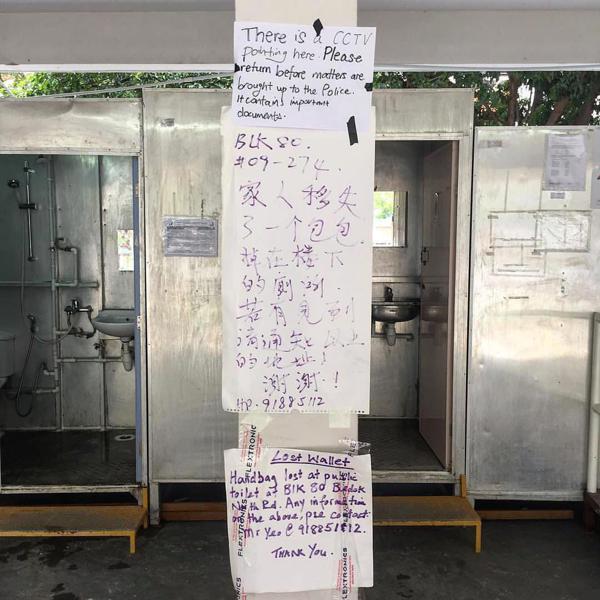 There is a CCTV
pointing here. Please
return before matters are
brought up to the Police.
It contains important
documents.
BLK 80.
#09-274.
家人移失
了一个包包
掉在楼下
的厕所.
若有见到
请通知以上
的地址!
谢谢!
HP. 91885112
Lost Wallet
Handbag lost at public
toilet at Blk 80 Bedok
North Rd. Any information
on the above, pse contact
Mr Yeo @ 91885112.
THANK YOU.
FLEXTRONIC
FLEXTRONICS
FLEXTRONICS